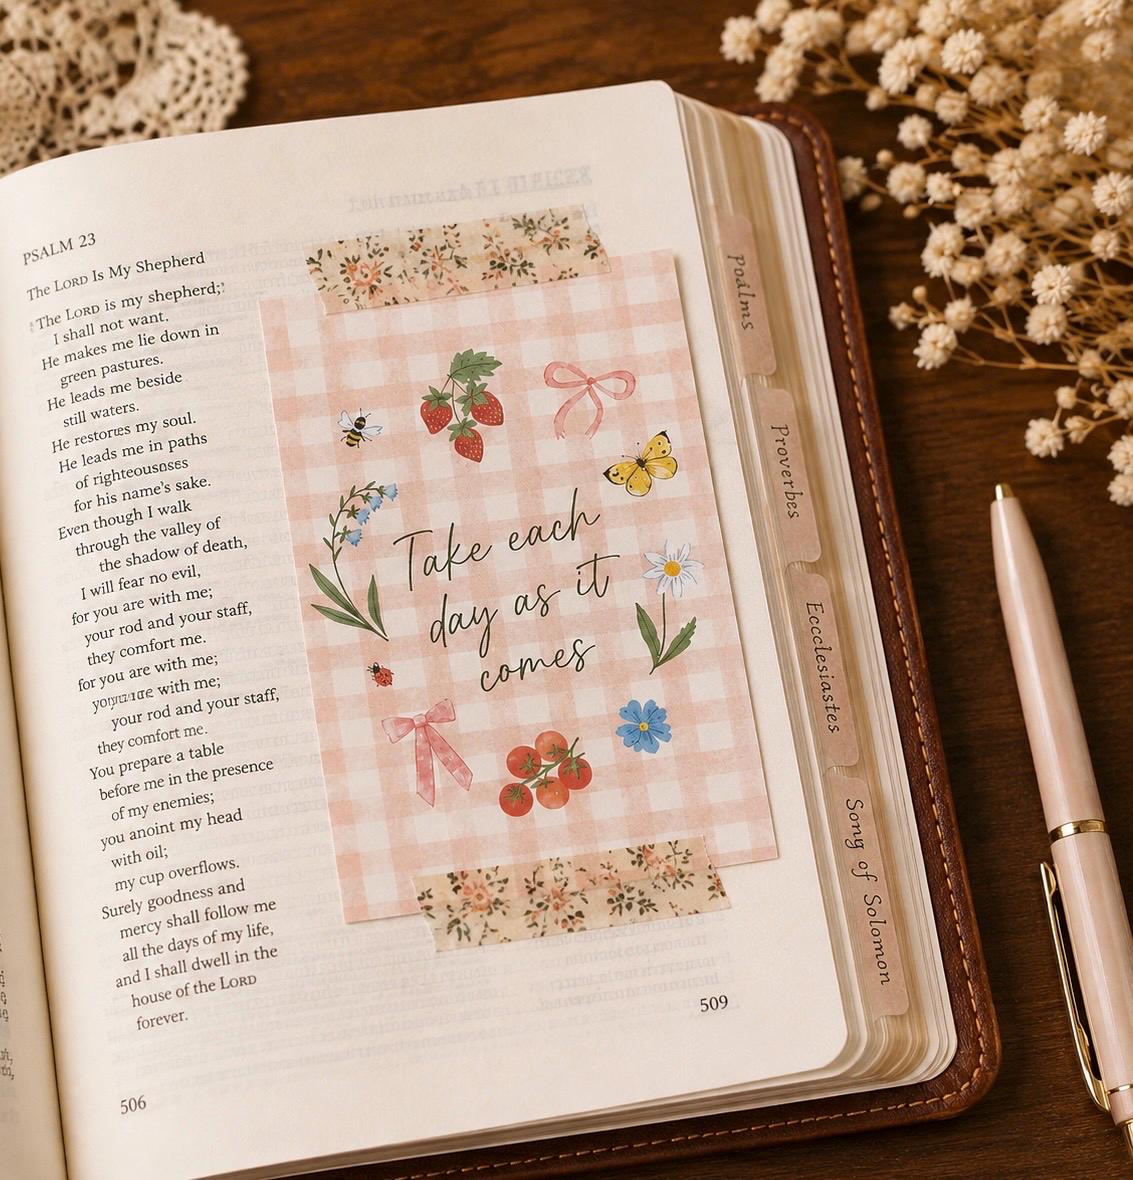 PSALM 23
The LORD Is My Shepherd
The LORD is my shepherd;
I shall not want.
He makes me lie down in
green pastures.
He leads me beside
still waters.
He restores my soul.
He leads me in paths
of righteousnses
for his name's sake.
Even though I walk
through the valley of
the shadow of death,
I will fear no evil,
for you are with me;
your rod and your staff,
they comfort me.
for you are with me;
with me;
your rod and your staff,
they comfort me.
You prepare a table
before me in the presence
of my enemies;
you anoint my head
with oil;
my cup overflows.
Surely goodness and
mercy shall follow me
all the days of my life,
and I shall dwell in the
house of the LORD
forever.
506
Take each
day as it
comes
509
Poálms
Proverbes
Eccclesiastes
Song of Solomon